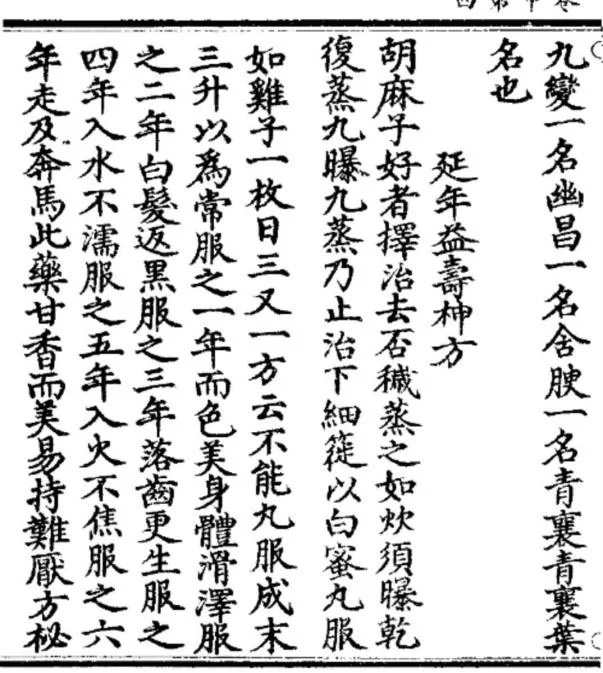 九變一名幽昌一名舍一名青襄青襄葉
名也
延年益壽神方
胡麻子好者擇治去否穢蒸之如炊須曝乾
復蒸九曝九蒸乃止治下細簁以白蜜丸服
如雞子一枚日三又一方云不能丸服成末
三升以爲常服之一年而色美身體滑澤服
之二年白髮返黑服之三年落齒更生服之
四年入水不濡服之五年入火不焦服之六
年走及奔馬此藥甘香而美易持難厭方秘